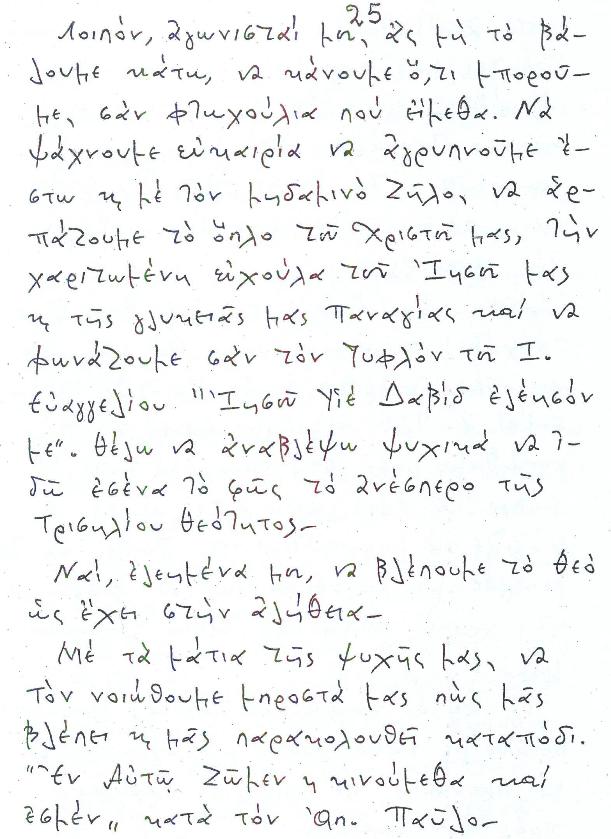 25
Λοιπόν, ἀγωνισταί μου, ἄς μή τό βά-
λουμε κάτω, νά κάνουμε ὅ,τι μποροῦ-
με, σάν φτωχούλια πού εἴμεθα. Νά
ψάχνουμε εὐκαιρία νά ἀγρυπνοῦμε ἔ-
στω κ μέ τόν μηδαμινό ζῆλο, νά ἁρ-
πάζουμε τό ὅπλο τοῦ Χριστοῦ μας, τήν
χαριτωμένη εὐχούλα τοῦ Ἰησοῦ μας
κ τῆς γλυκειᾶς μας Παναγίας καί νά
φωνάζουμε σάν τόν τυφλόν τοῦ Ἰ.
Εὐαγγελίου "Ἰησοῦ Υἱέ Δαβίδ ἐλέησόν
με". Θέλω νά ἀναβλέψω ψυχικά νά ἰ-
δῶ ἐσένα τό φῶς τό ἀνέσπερο τῆς
Τρισηλίου Θεότητος_
Ναί, ἐλεημένα μου, νά βλέπουμε τό Θεό
ὡς ἔχει στήν ἀλήθεια_
Μέ τά μάτια τῆς ψυχῆς μας, νά
Τόν νοιώθουμε μπροστά μας πώς μᾶς
βλέπει κ μᾶς παρακολουθεῖ καταπόδι.
"Ἐν Αὐτῷ ζῶμεν κ κινούμεθα καί
ἐσμέν" κατά τόν Ἀπ. Παῦλο_